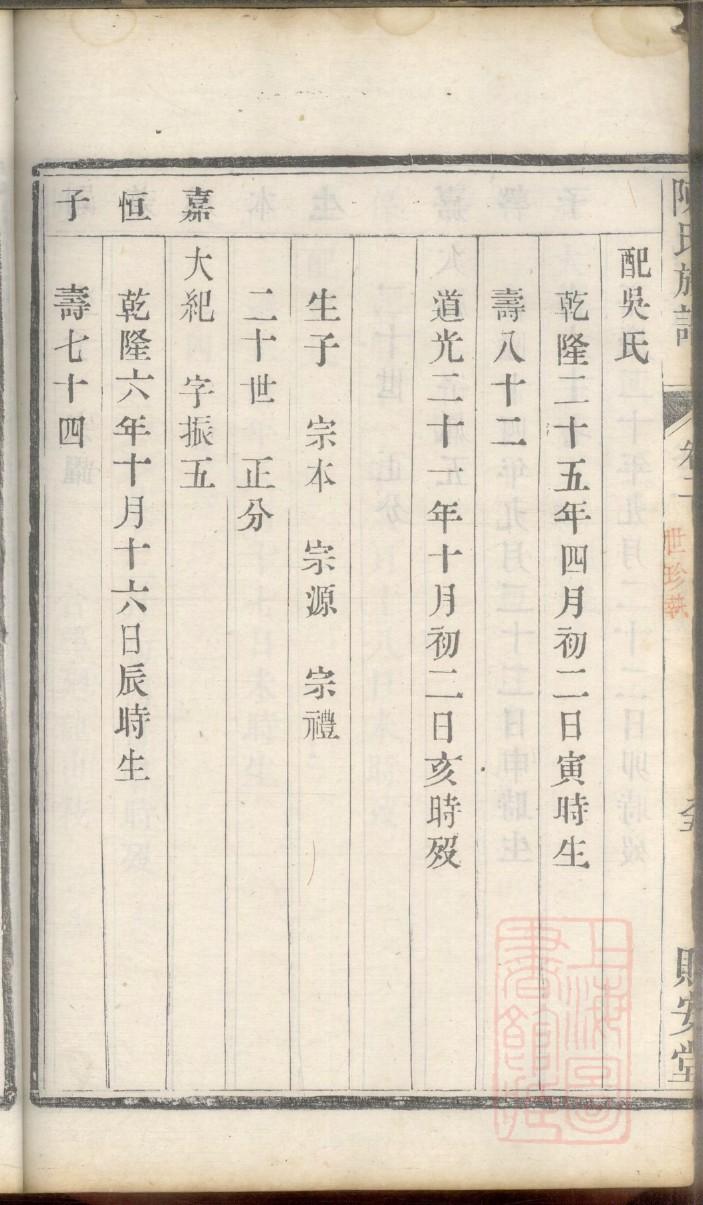 陳氏族譜
卷二
世珍執
貽安堂
配吳氏
乾隆二十五年四月初二日寅時生
壽八十二
道光二十一年十月初二日亥時歿
生子 宗本 宗源 宗禮
二十世 正分
嘉
大紀 字振五
恒
乾隆六年十月十六日辰時生
子
壽七十四
上海圖書館藏